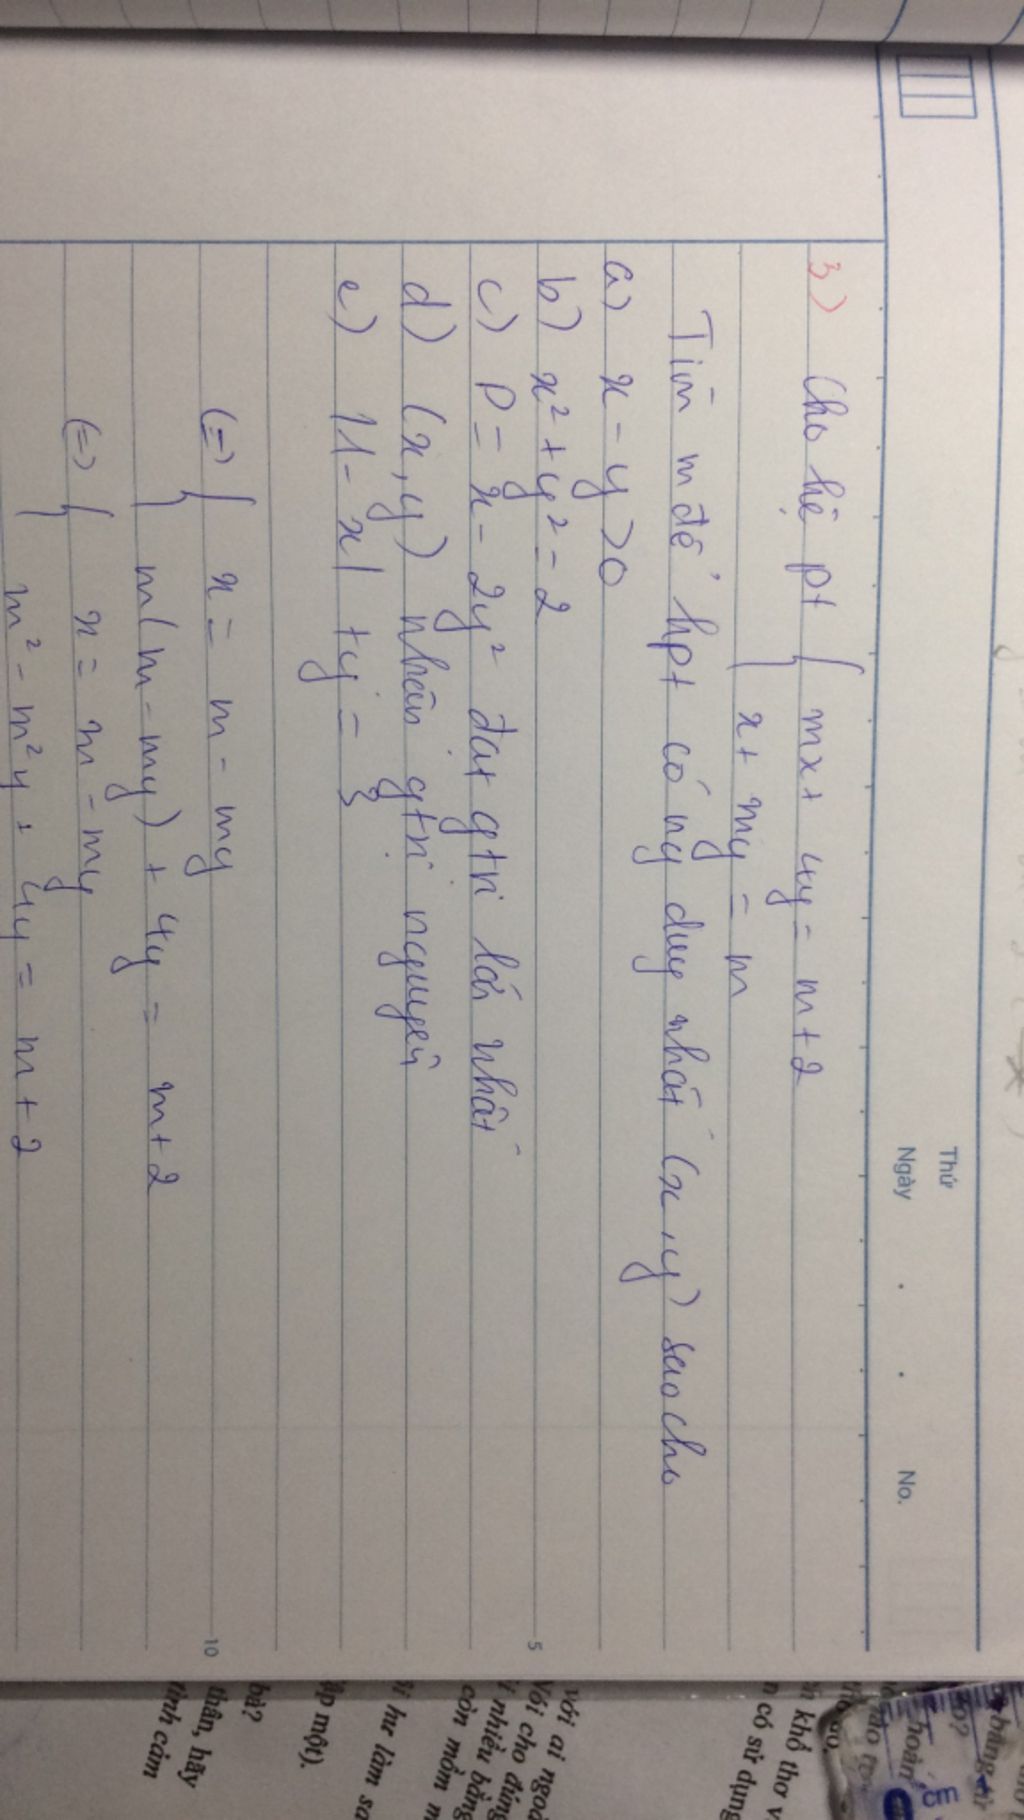 Thứ
Ngày . . No.
3) Cho hệ pt { mx + 4y = m+2
x + my = m
Tìm m để hpt có ng duy nhất (x,y) sao cho
a) x - y > 0
b) x² + y² = 2
c) P = x - 2y² đạt gtrị lớn nhất
d) (x,y) nhận gtrị nguyên
e) |1 - x| + y = 3
(=) { x = m - my
m(m - my) + 4y = m+2
(=) { x = m - my
m² - m²y + 4y = m + 2
5
10
với ai ngoà
Với cho đúng
í nhiều bằng
còn mồm m
ít hư làm sa
ập một).
bà?
thân, hãy
tình cảm
khổ thơ v
n có sử dụng
cm